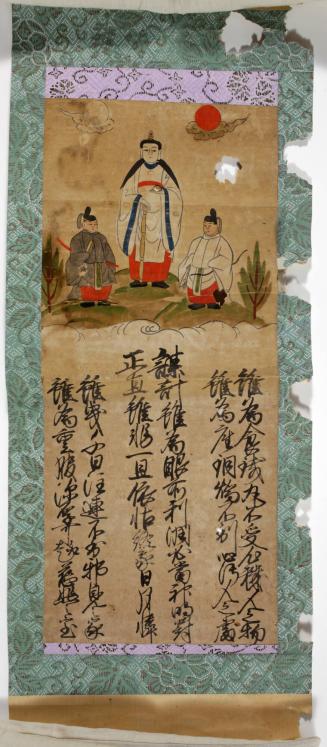 雖為食鐵丸不受心穢人之物
雖為座銅焔不到心濁人之處
謀計雖為眼前利潤必當神明罸
正直雖非一旦依怙終蒙日月憐
雖曳千日注連不到邪見家
雖為重服深厚赴慈悲室